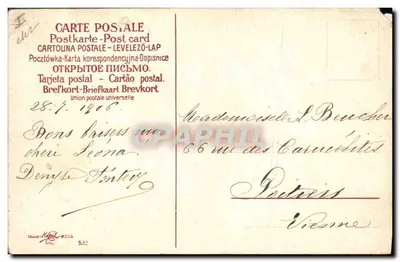 CARTE POSTALE
Postkarte-Post card
CARTOLINA POSTALE - LEVELEZŐ-LAP
Pocztówka-Karta korespondencyjna-Dopisnice
ОТКРЫТОЕ ПИСЬМО.
Tarjeta postal - Cartão postal.
Brefkort-Briefkaart Brevkort.
Union postale universelle
28.7.1906
Bons baisers ma
chère Léona.
Mademoiselle L. Beucher
66 rue des Carmélites
Poitiers
Vienne
CPAPHIL
532